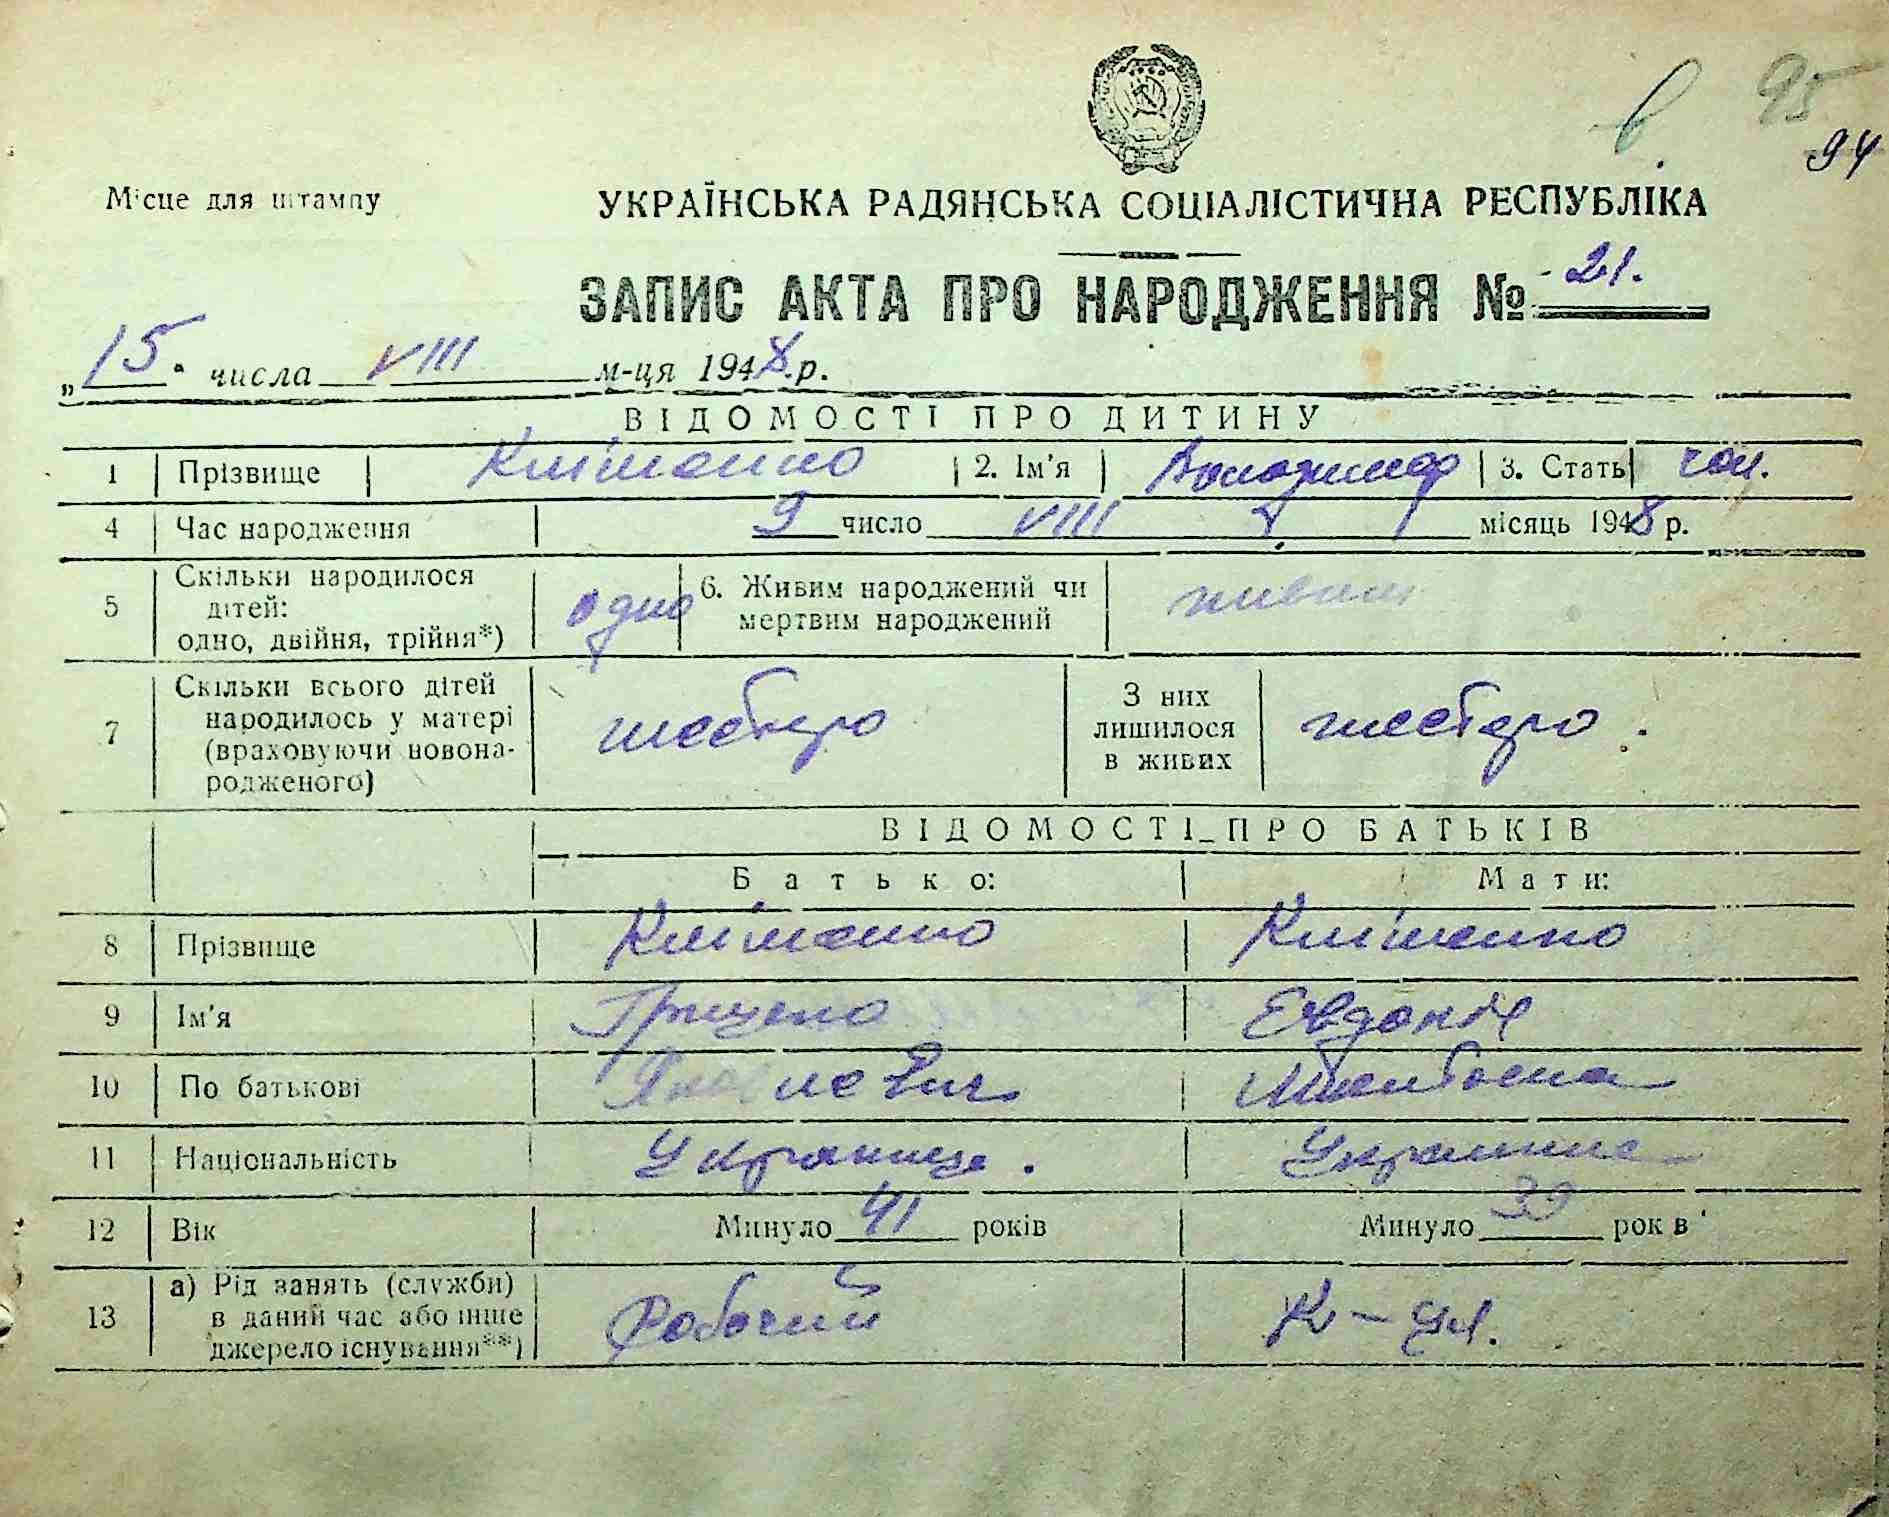 в. 95
94
Місце для штампу
УКРАЇНСЬКА РАДЯНСЬКА СОЦІАЛІСТИЧНА РЕСПУБЛІКА
ЗАПИС АКТА ПРО НАРОДЖЕННЯ № 21.
„15" числа VIII м-ця 1948 р.
ВІДОМОСТІ ПРО ДИТИНУ
1 Прізвище Кліменко 2. Ім'я Володимир 3. Стать чол.
4 Час народження 9 число VIII місяць 1948 р.
5 Скільки народилося дітей: одно, двійня, трійня*) одно 6. Живим народжений чи мертвим народжений живим
7 Скільки всього дітей народилось у матері (враховуючи новонародженого) шестеро З них лишилося в живих шестеро.
ВІДОМОСТІ ПРО БАТЬКІВ
Батько: Мати:
8 Прізвище Кліменко Кліменко
9 Ім'я Грицько Евдокія
10 По батькові
11 Національність Українець. Українка
12 Вік Минуло 41 років Минуло 39 років
13 а) Рід занять (служби) в даний час або інше джерело існування**) Робочий К-ця.